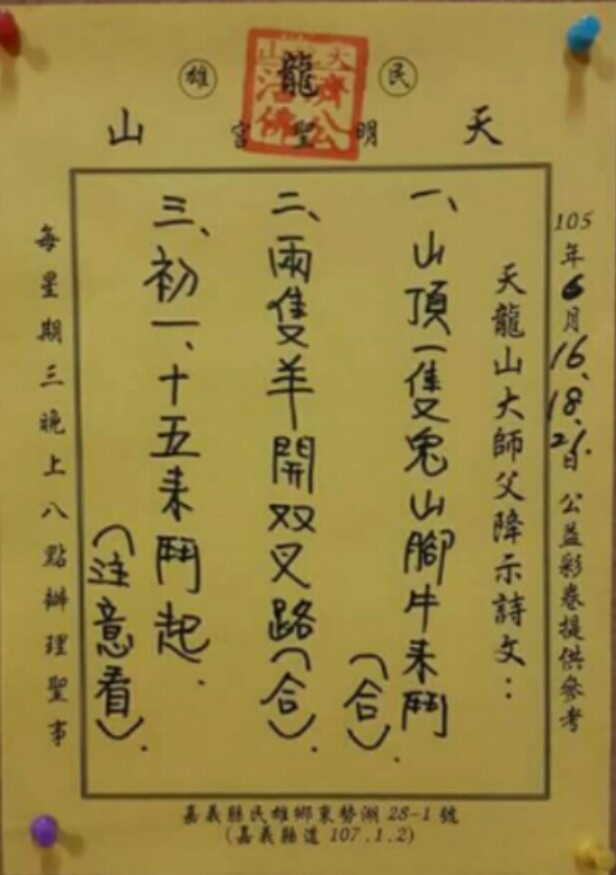 民雄
天龍山
明聖宮
濟公活佛
105年6月16.18.21.日 公益彩卷提供參考
天龍山大師父降示詩文：
一、山頂一隻兔山腳牛來鬥
(合).
二、兩隻羊開双叉路(合).
三、初一、十五來鬥起.
(注意看).
每星期三晚上八點辦理聖事
嘉義縣民雄鄉東勢湖 28-1 號
(嘉義縣道 107.1.2)